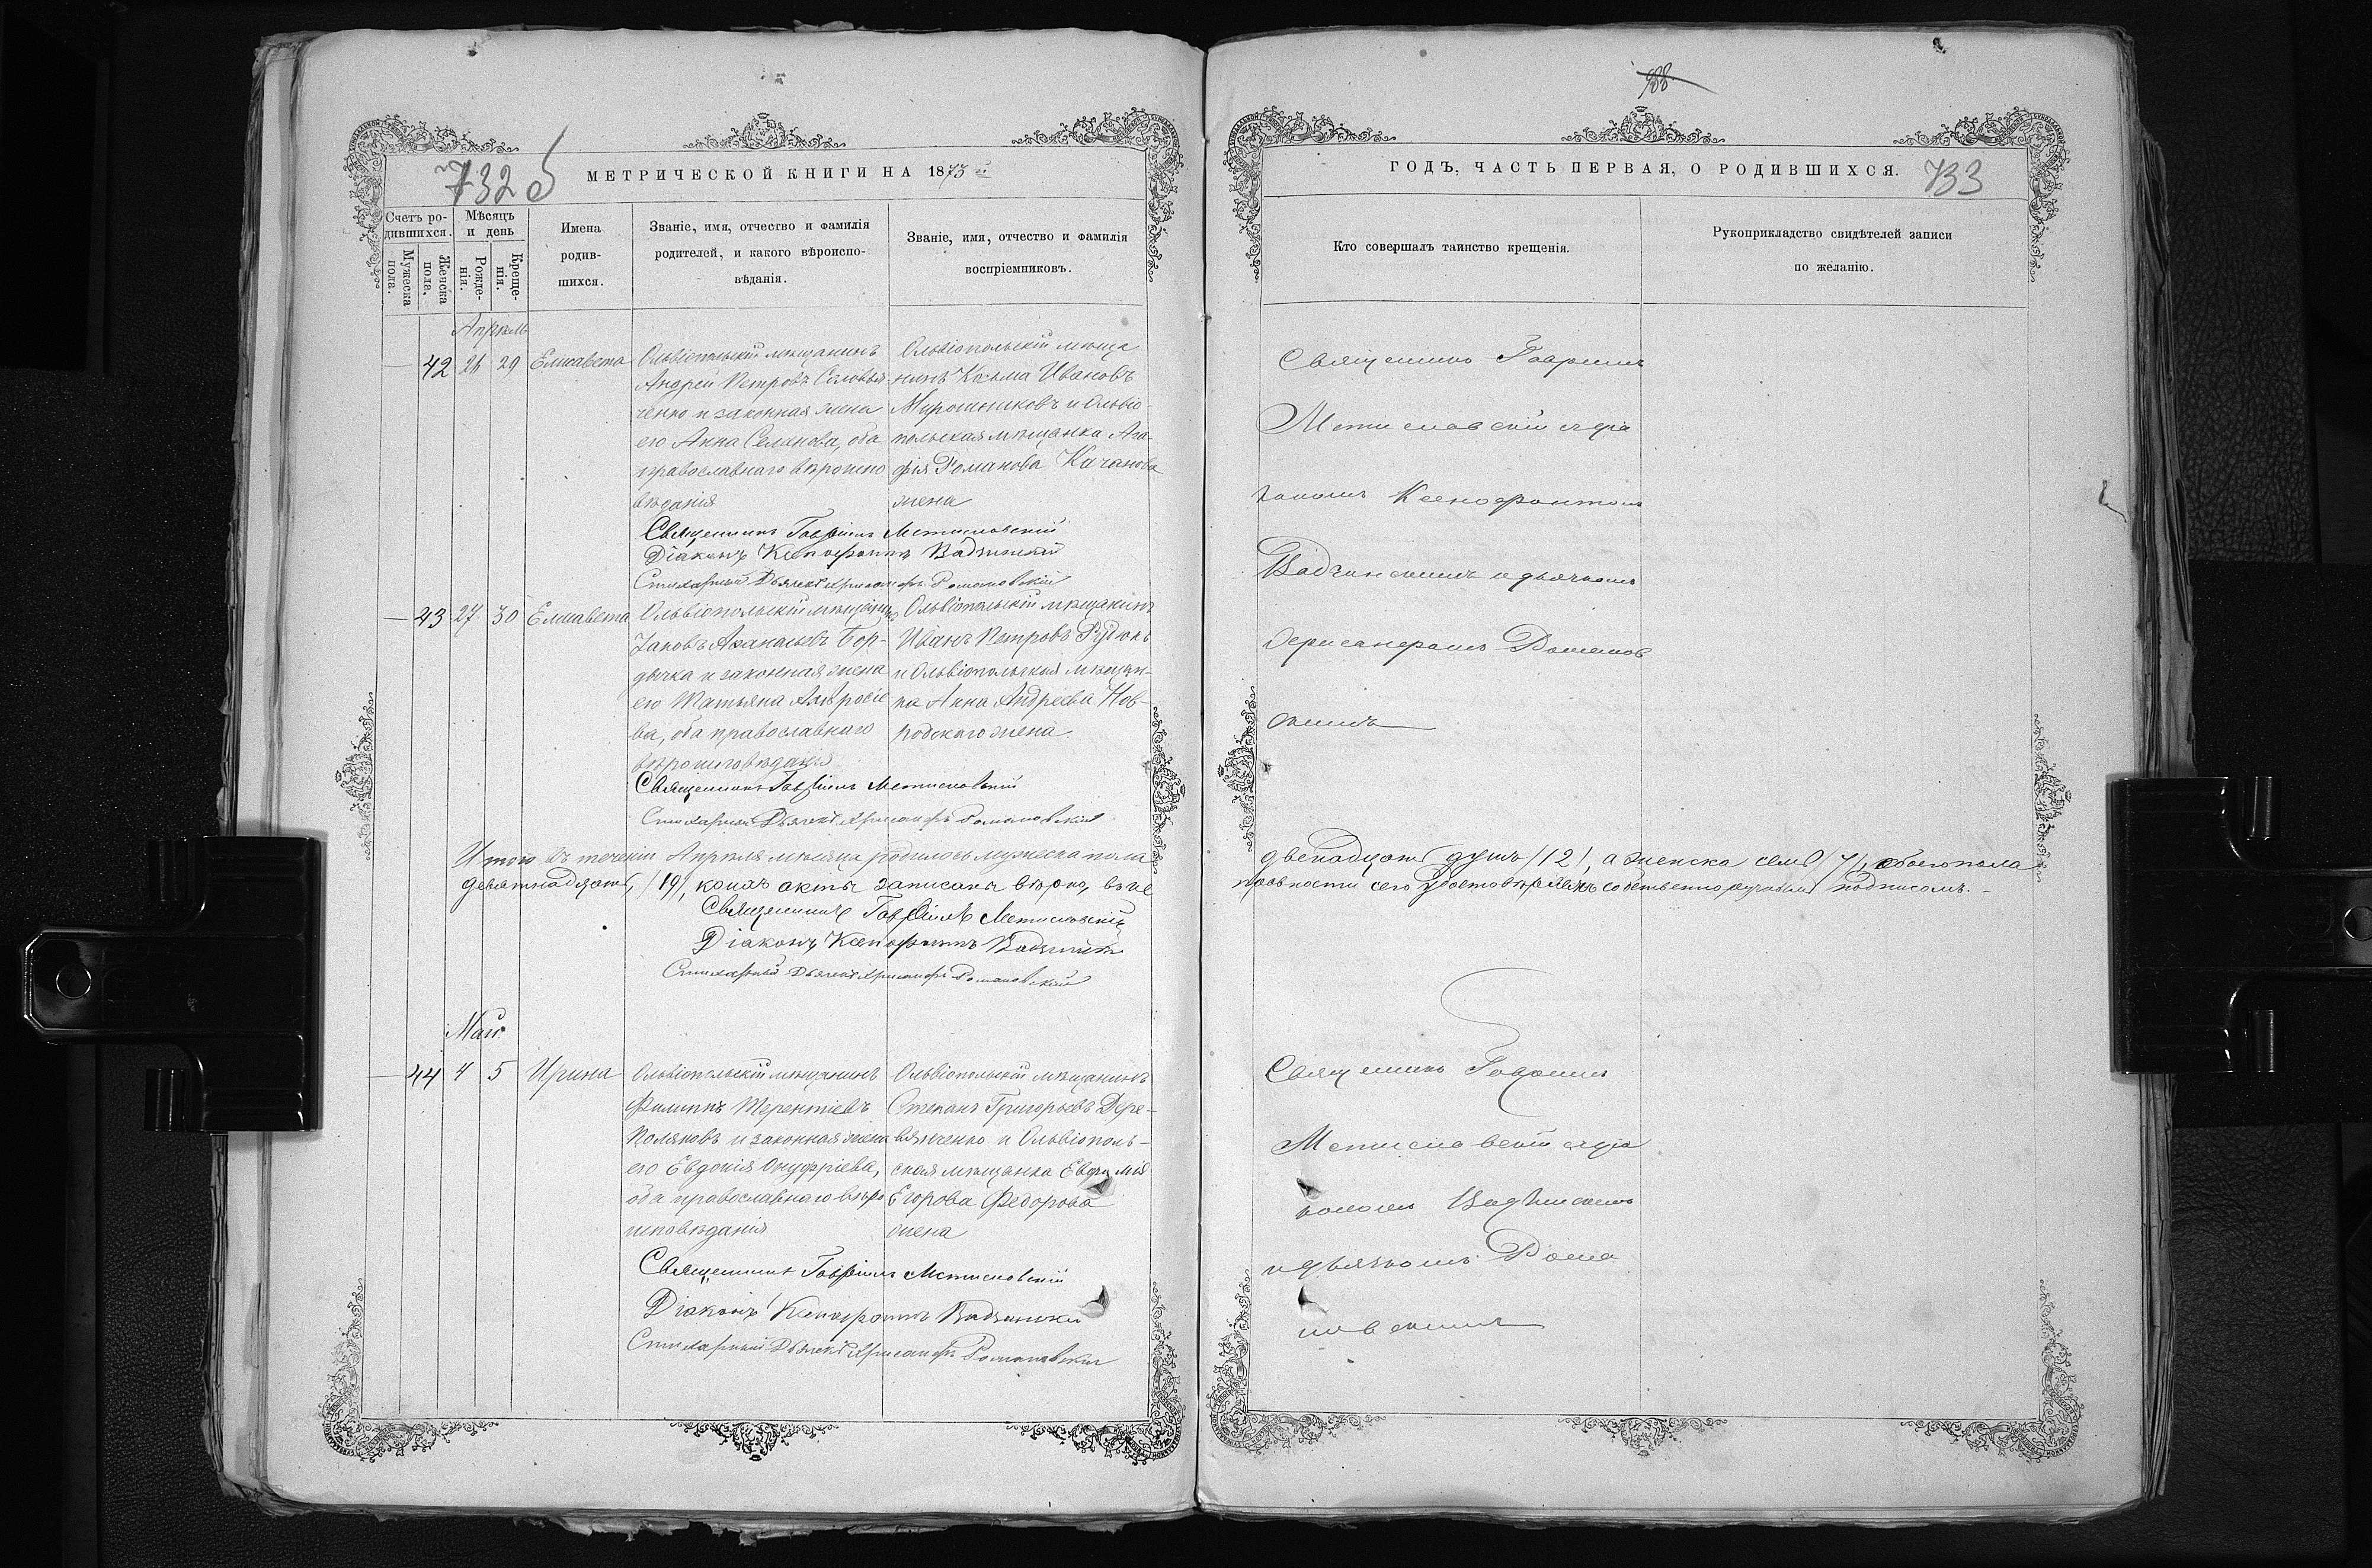 732 б
МЕТРИЧЕСКОЙ КНИГИ НА 1873й
Счетъ ро-
дившихся.
Мужеска
пола.
Женска
пола.
Мѣсяцъ
и день
Рожде-
нія.
Креще-
нія.
Имена
родив-
шихся.
Званіе, имя, отчество и фамилія
родителей, и какого вѣроиспо-
вѣданія.
Званіе, имя, отчество и фамилія
воспріемниковъ.
Апрѣль
— 42 26 29 Елисавета
Ольвіопольскій мѣщанинъ
Андрей Петровъ Соловья
ченко и законная жена
его Анна Селанова, оба
православнаго вѣроиспо
вѣданія
Ольвіопольскій мѣща
нинъ Козьма Ивановъ
Мирошниковъ и Ольвіо-
польская мѣщанка Ага-
фія Романова Качанова
жена
Священникъ Гавріилъ Мстиславскій
Діаконъ Ксенофонтъ Вадзинскій
Стихарный Дьячекъ Романовскій
— 43 27 30 Елисавета
Ольвіопольскій мѣщанинъ
Іаковъ Афанасьевъ Бор-
дычка и законная жена
его Татьяна Амвросіе
ва, оба православнаго
вѣроисповѣданія
Ольвіопольскій мѣщанинъ
Иванъ Петровъ Рудюкъ
и Ольвіопольская мѣщан-
ка Анна Андреева Нов-
родскаго жена.
Священникъ Гавріилъ Мстиславскій
Стихарный Дьячекъ Романовскій
Итого въ теченіи Апрѣля мѣсяца родилось мужеска пола
девятнадцать, /19/, коихъ акты записаны вѣрно, въ че
Священникъ Гавріилъ Мстиславскій
Діаконъ Ксенофонтъ Вадзинскій
Стихарный Дьячекъ Романовскій
Май
— 44 4 5 Ирина
Ольвіопольскій мѣщанинъ
Филиппъ Терентіевъ
Поляковъ и законная жена
его Евдокія Онуфріева,
оба православнаго вѣро
исповѣданія
Ольвіопольскій мѣщанинъ
Степанъ Григорьевъ Дере-
вянченко и Ольвіополь-
ская мѣщанка Евфимія
Егорова Федорова
жена
Священникъ Гавріилъ Мстиславскій
Діаконъ Ксенофонтъ Вадзинскій
Стихарный Дьячекъ Романовскій
988
ГОДЪ, ЧАСТЬ ПЕРВАЯ, О РОДИВШИХСЯ.
733
Кто совершалъ таинство крещенія.
Рукоприкладство свидѣтелей записи
по желанію.
Священникъ Гавріилъ
Мстиславскій съ діа
кономъ Ксенофонтомъ
Вадзинскимъ и дьячкомъ
Романов
скимъ
двенадцать душъ /12/, а женска семь /7/, обоего пола
сего удостовѣряемъ собственноручнымъ подписомъ.-
Священникъ Гавріилъ
Мстиславскій съ діа
кономъ Вадзинскимъ
и дьячкомъ Рома
новскимъ